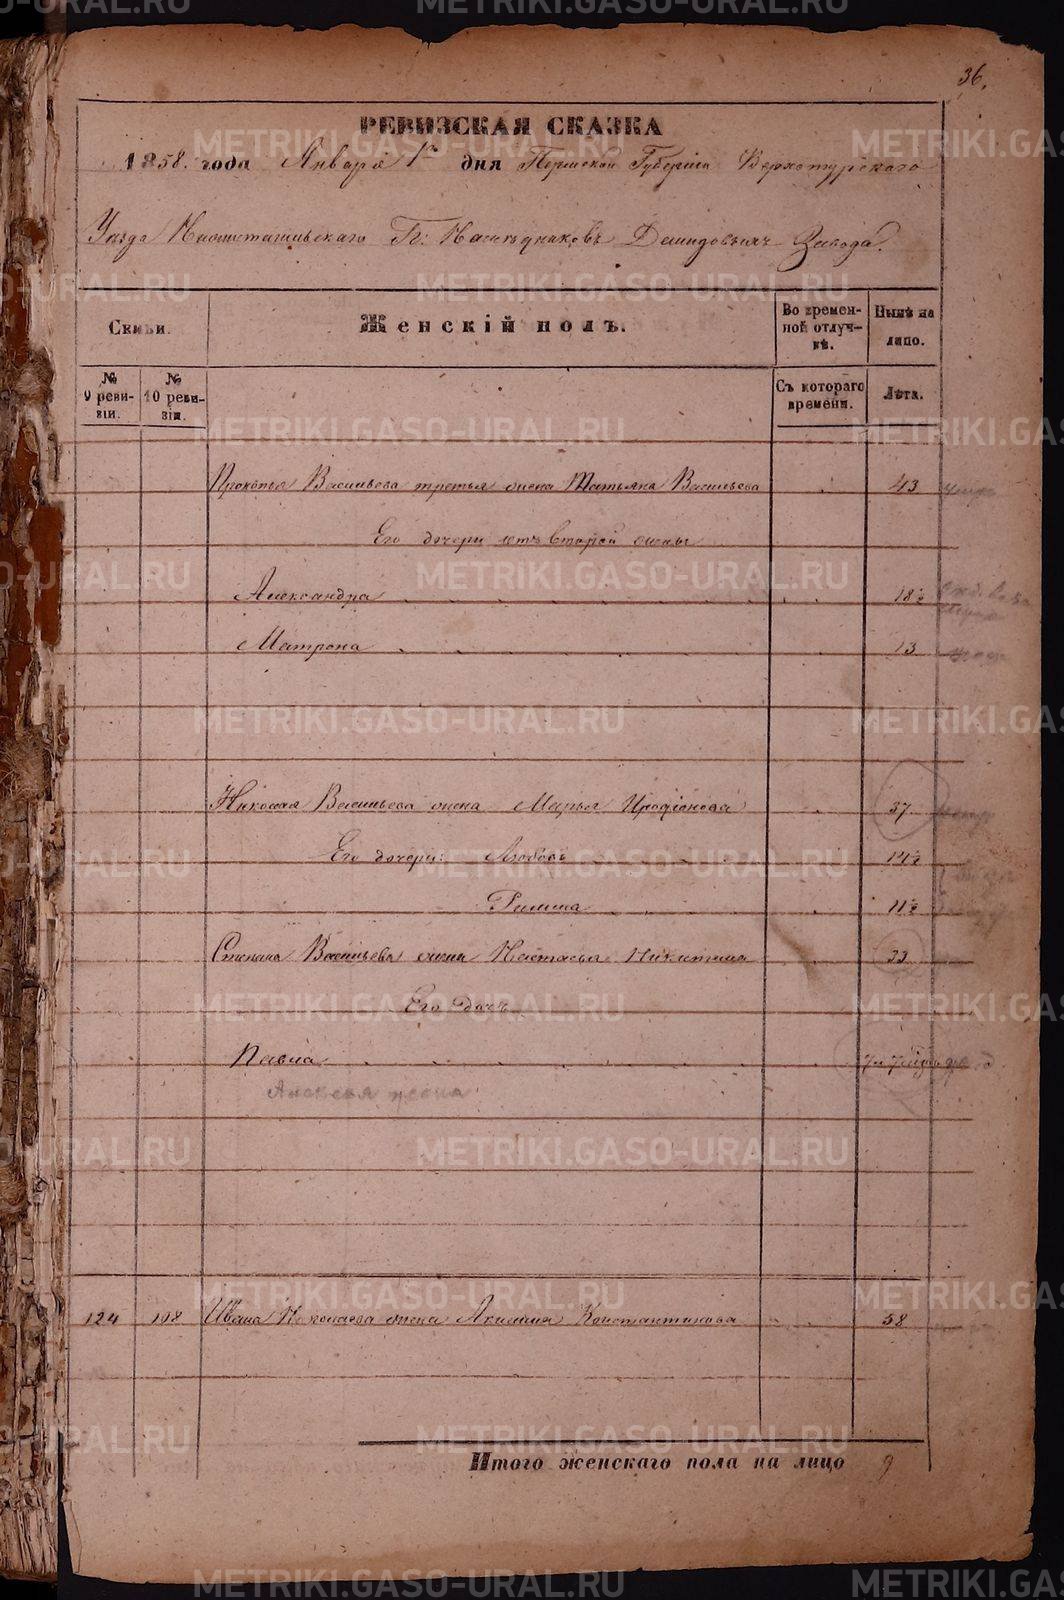 36.
РЕВИЗСКАЯ СКАЗКА
1858. года Января 1го дня Пермской Губерніи Верхотурскаго
Уезда Нижнетагильскаго Гг: Наследниковъ Демидовыхъ Завода.
Семьи.
Женскій полъ.
Во времен-
ной отлуч-
кѣ.
Нынѣ на
лицо.
№
9 реви-
зіи.
№
10 реви-
зіи.
Съ котораго
времени.
Лѣта.
Прокопья Васильева третья жена Татьяна Васильева 43
Его дочери отъ второй жены
Александра 18½
Матрона 13
Николая Васильева жена Марья Иродіонова 37
Его дочери: Любовь 14½
Римма 11½
Степана Васильева жена Настасья Никитина 33
Его дочь
Павла
Алексея жена
124 108 Ивана Николаева жена Акилина Константинова 58
Итого женскаго пола на лицо 9
METRIKI.GASO-URAL.RU